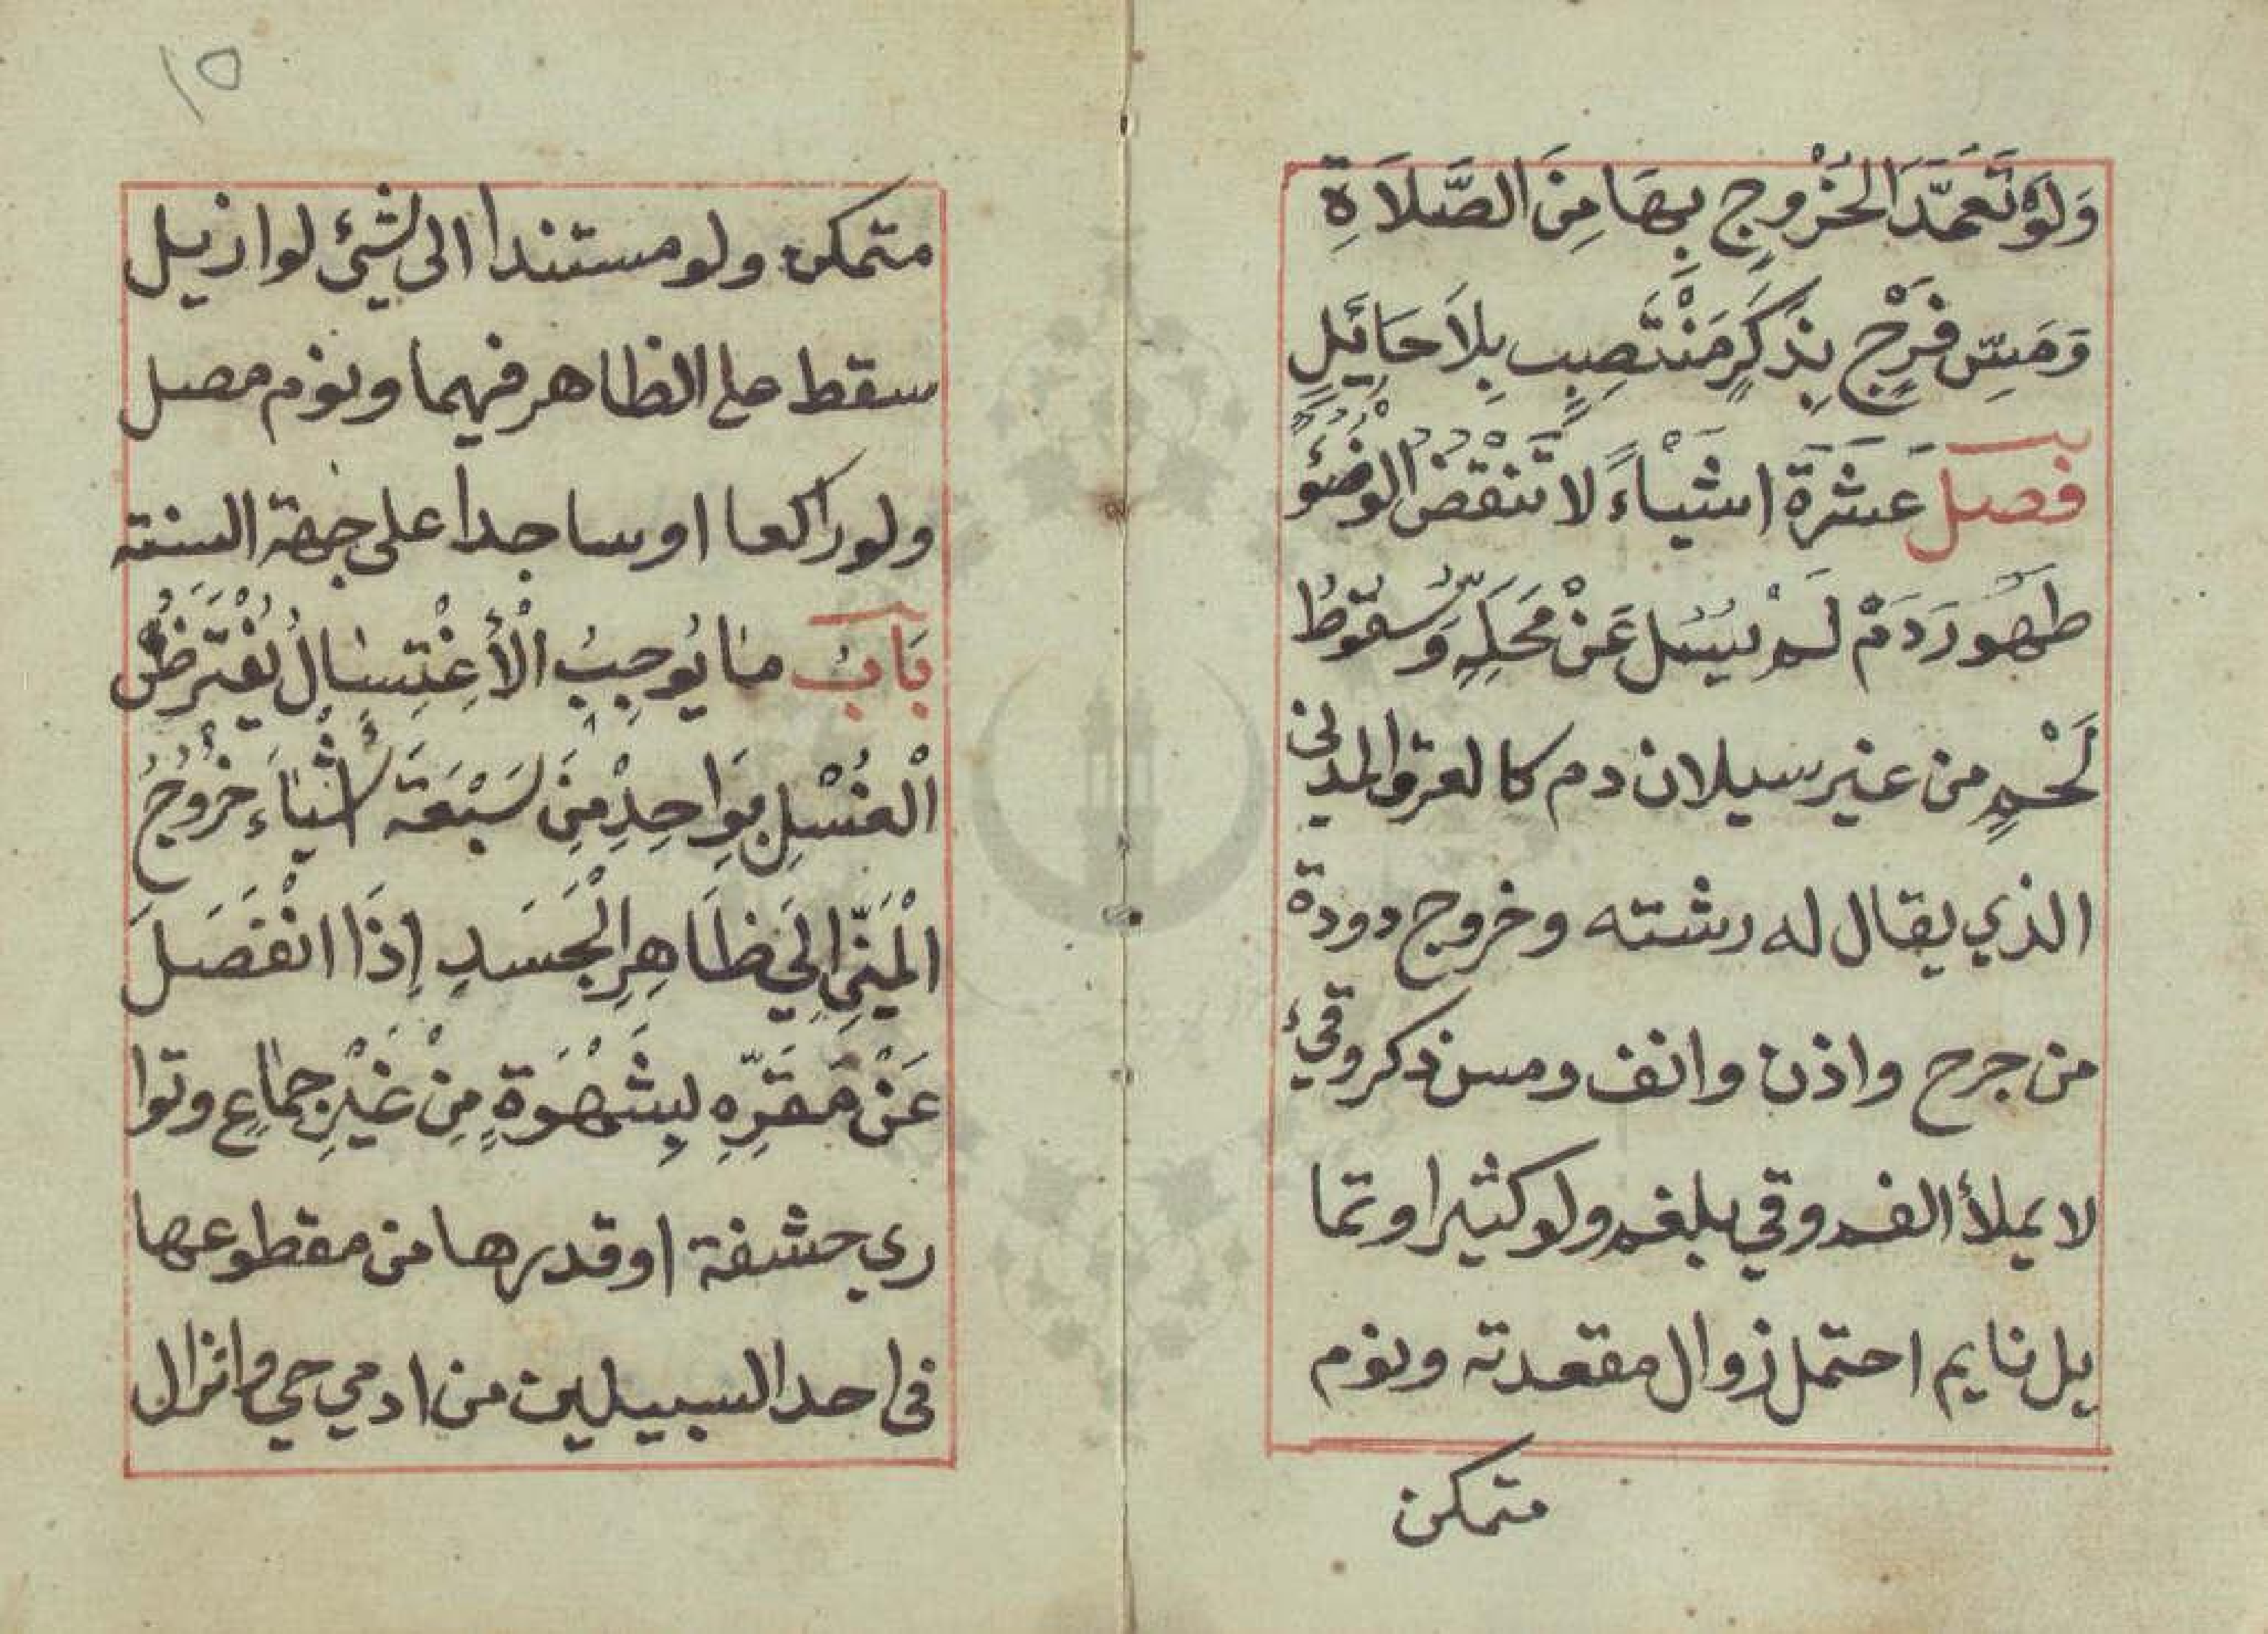 وَلَوْ تَعَمَّدَ الْخُرُوجِ بِهَا مِنَ الصَّلَاةِ
وَمَسِّ فَرْجٍ بِذَكَرٍ مُنْتَصِبٍ بِلَا حَائِلٍ
فصل عَشَرَةَ اشْيَاءَ لا تَنْقُضُ الْوُضُوءَ
ظهور دَمٍ لَمْ يَسِلْ عَنْ مَحَلِّهِ وَسُقُوطُ
لَحْمٍ من غير سيلان دم كالعرق المدني
الذي يقال له رشته وخروج دودة
من جرح واذن وانف ومس ذكر وقيء
لا يملأ الفم وقي بلغم ولو كثيرا وتما
يل نايم احتمل زوال مقعدته ونوم
متمكن
١٥
متمكن ولو مستندا الى شيئ لو ازيل
سقط على الظاهر فيهما ونوم مصل
ولو راكعا او ساجدا على جهة السنته
بَابُ مَا يُوجِبُ الْأِغْتِسَالُ يُفْتَرَضُ
الْغُسْلِ بِوَاحِدٍ مِنَ سَبْعَةَ اشْيَاءَ خُرُوجُ
الْمَنِيِّ الَى ظَاهِرِ الْجَسَدِ إِذَا انْفَصَلَ
عَنْ مَقَرِّهِ بِشَهْوَةٍ مِنْ غَيْرِ جِمَاعٍ وتوا
ري حشفة او قدرها من مقطوعها
فى احد السبيلين من ادمي حي وانزال